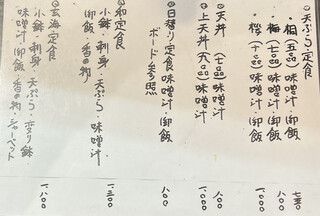 ◎天ぷら定食
・桐(五品)味噌汁・御飯 七五〇
・梅(七品)味噌汁・御飯 八〇〇
・桜(十品)味噌汁・御飯 一〇〇〇
◎天丼(七品)味噌汁 八〇〇
◎上天丼(九品)味噌汁 一〇〇〇
◎日替り定食味噌汁・御飯 八〇〇
ボード参照
◎和定食 一五〇〇
小鉢・刺身・天ぷら・味噌汁
御飯・香の物
◎玄海定食 一八〇〇
小鉢・刺身・天ぷら・変り鉢
味噌汁・御飯・香の物・シャーベット